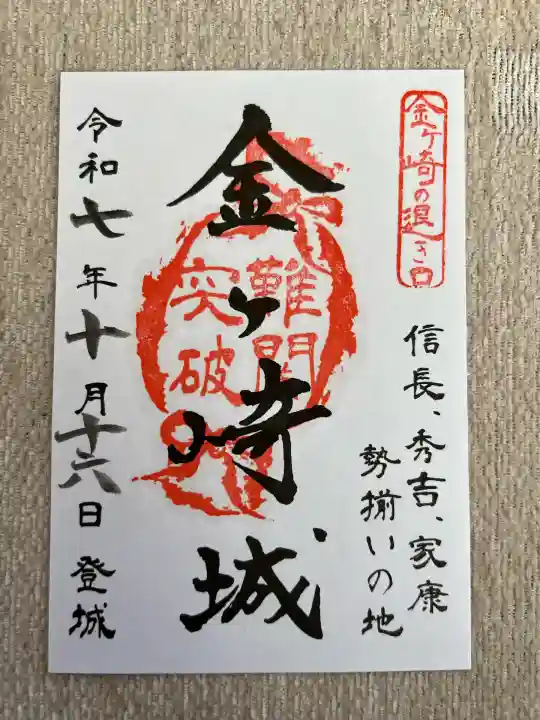 金ヶ崎の退き口
信長、秀吉、家康
勢揃いの地
金ヶ崎城
難関
突破
令和七年十月十六日登城